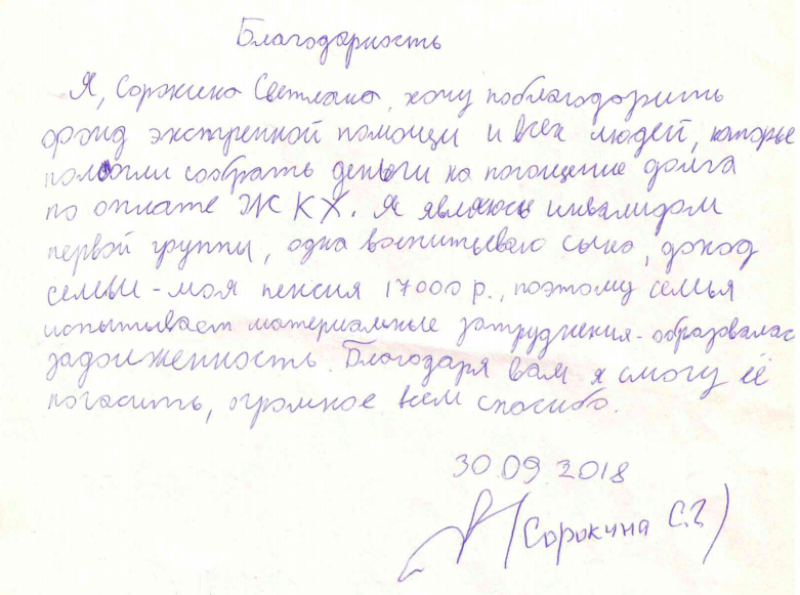 Благодарность
Я, Сорокина Светлана, хочу поблагодарить
фонд экстренной помощи и всех людей, которые
помогли собрать деньги на погащение долга
по оплате ЖКХ. Я являюсь инвалидом
первой группы, одна воспитываю сына, доход
семьи - моя пенсия 17000 р., поэтому семья
испытывает материальные затруднения - образовалась
задолженность. Благодаря вам я смогу её
погасить, огромное всем спасибо.
30.09.2018
(Сорокина С.Г)